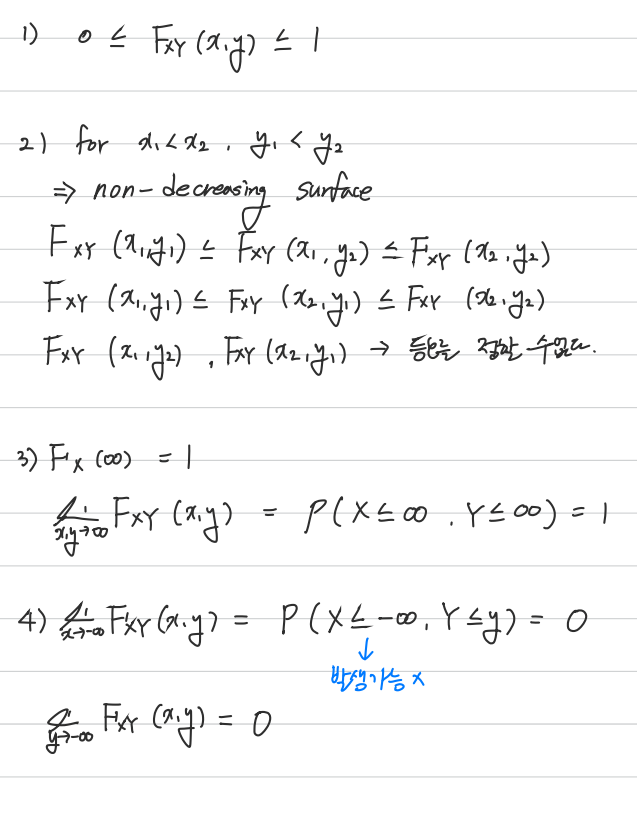 1) 0 ≤ F_XY (x,y) ≤ 1
2) for x₁ < x₂ , y₁ < y₂
⇒ non-decreasing surface
F_XY (x₁,y₁) ≤ F_XY (x₁,y₂) ≤ F_XY (x₂,y₂)
F_XY (x₁,y₁) ≤ F_XY (x₂,y₁) ≤ F_XY (x₂,y₂)
F_XY (x₁,y₂) , F_XY (x₂,y₁) → 등호를 정할 수 없다.
3) F_X (∞) = 1
lim_{x,y→∞} F_XY (x,y) = P(X ≤ ∞ , Y ≤ ∞) = 1
4) lim_{x→-∞} F_XY (x,y) = P(X ≤ -∞, Y ≤ y) = 0
↓
발생가능 x
lim_{y→-∞} F_XY (x,y) = 0